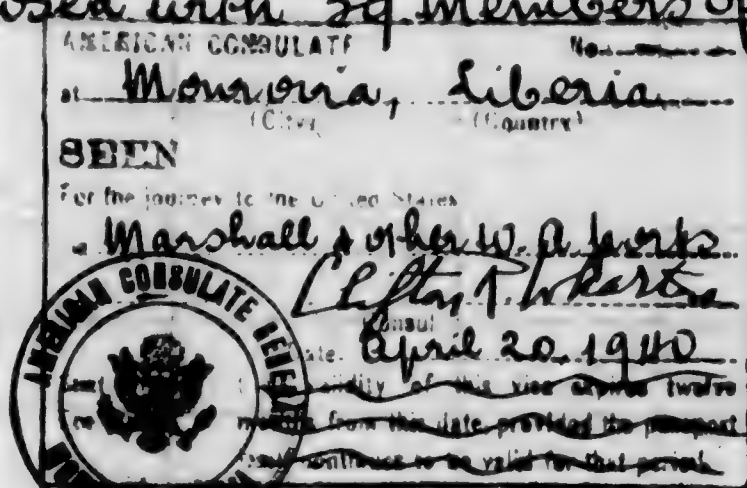 with 39 members
AMERICAN CONSULATE No.
at Monrovia, Liberia
(City) (Country)
SEEN
For the journey to the United States
Marshall & other W. A. ports
Clifton R. Wharton
Consul
Date. April 20. 1940
validity of this visa expires twelve
months from this date provided the passport
continues to be valid for that period.
AMERICAN CONSULATE GENERAL